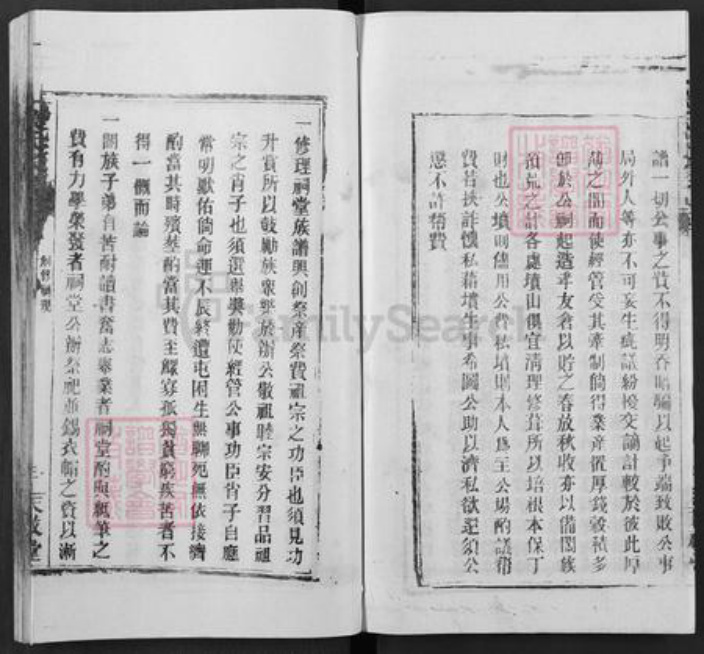 譜一切公事之貲不得明吞暗騙以起爭端致敗公事
局外人等亦不可妄生疵議紛擾交謫計較於彼此厚
薄之間而使經管受其牽制倘得業產置厚錢穀積多
即於公祠起造平友倉以貯之春放秋收亦以備闔族
預荒之計各處墳山俱宜清理修葺所以培根本保丁
財也公墳則儘用公費私墳則本人為主公場酌議幫
費若挾詐懷私藉墳生事希圖公助以濟私欲定須公
懲不許幫費
一修理祠堂族譜興創祭產祭費祖宗之功臣也須見功
升賞所以鼓勵族眾至於辦公敬祖睦宗安分習品祖
宗之肖子也須選舉獎勸使經管公事功臣肖子自應
常明默佑倘命運不辰終遭屯困生無聊死無依接濟
酌當其時殯葬酌當其費至鰥寡孤獨貧窮疾苦者不
得一概而論
一闔族子弟自苦耐讀書奮志舉業者祠堂酌與紙筆之
費有力學榮發者祠堂公辦祭祀並錫衣帽之資以漸
堂
FamilySearch